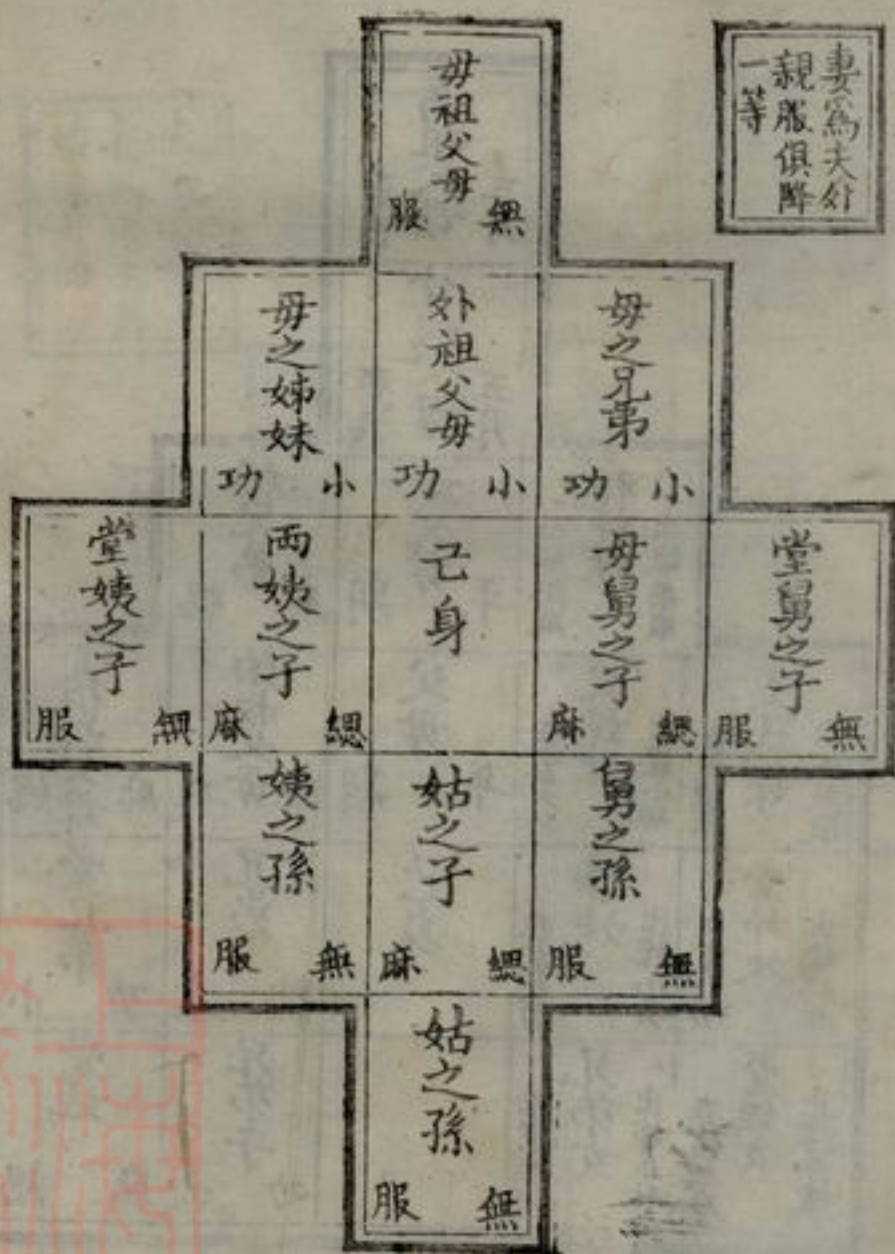 妻為夫外
親服俱降
一等
毋祖父毋
無服
毋之兄弟
小功
外祖父毋
小功
毋之姊妹
小功
堂舅之子
無服
毋舅之子
緦麻
己身
両姨之子
緦麻
堂姨之子
無服
舅之孫
無服
姑之子
緦麻
姨之孫
無服
姑之孫
無服